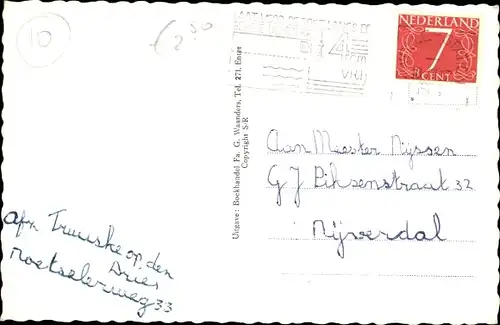 10
€ 2 50
NEDERLAND
7
CENT
Uitgave: Boekhandel Fa. G. Waanders, Tel. 271, Enter
Copyright S-R
Aan Meester Nijssen
G J Piksenstraat 32
Nijverdal
afz. Truuske op den
Dries
32